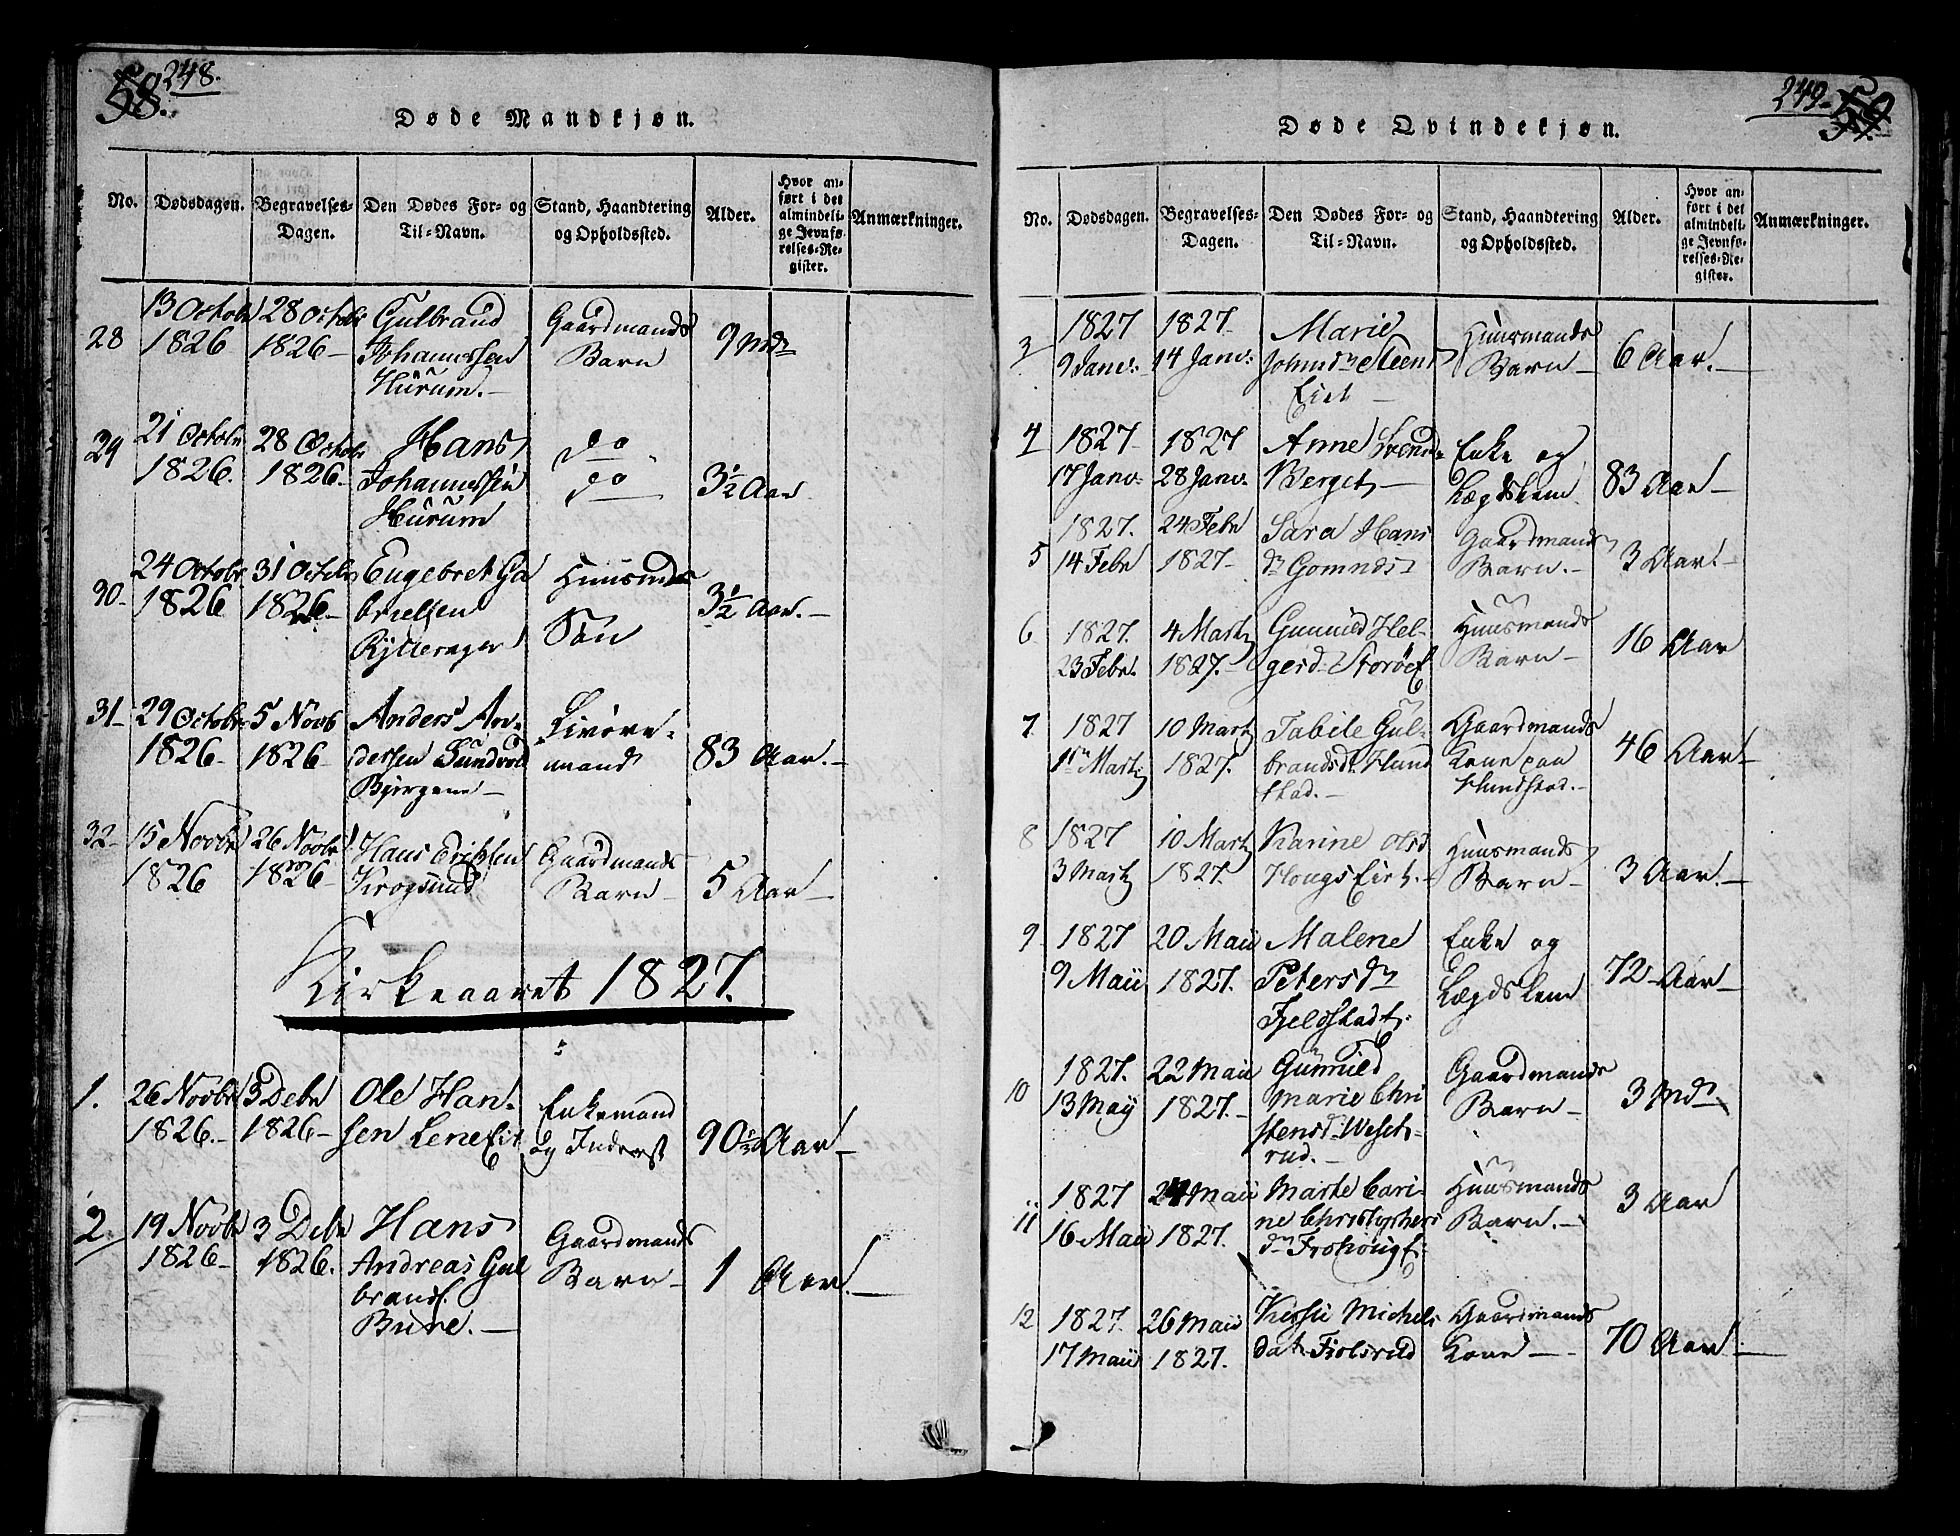 58. 248.
Døde Mandkjøn.
No. Dødsdagen. Begravelses-Dagen. Den Dødes For- og Til-Navn. Stand, Haandtering og Opholdssted. Alder. Hvor anført i det almindelige Jevnførelses-Register. Anmærkninger.
28 13 Octobr 1826 28 Octobr 1826 Gulbrand Johannessen Hürum. Gaardmands Barn 9 Mdr
29 21 Octobr 1826. 28 Octobr 1826. Hans Johannessen Hürum do do 3½ Aar
30 24 Octobr. 1826 31 Octobr 1826 Engebret Gabrielsen Rytterager Huusmds Søn 3½ Aar.
31 29 Octobr 1826 5 Novb 1826 Anders An-dersen Sundvold Bjergene 83 Aar.
32 15 Novbr 1826 26 Novbr 1826 Hans Erichsen Krogsund Gaardmands Barn 5 Aar
Kirkeaaret 1827.
1. 26 Novbr 1826. 3 Debr 1826 Ole Han-sen LeneEit Enkemand og Inderst 90½ Aar
2. 19 Novbr 1826 3 Debr 1826. Hans Andreas Gulbrands. Bure. Gaardmands Barn 1 Aar.
249. 59.
Døde Qvindekjøn.
No. Dødsdagen. Begravelses-Dagen. Den Dødes For- og Til-Navn. Stand, Haandtering og Opholdssted. Alder. Hvor anført i det almindelige Jevnførelses-Register. Anmærkninger.
3 1827 9 Janv: 1827 14 Janv: Marie Johnsdr Steens Eiet Huusmands Barn 6 Aar.
4 1827 17 Janv: 1827 28 Janv. Anne Svends Berget Enke og Lægdslem 83 Aar
5 1827. 14 Febr 24 Febr 1827. Sara Hans dr Gomnæs Gaardmands Barn. 3 Aar.
6 1827. 23 Febr. 4 Marty 1827. Gunnild Hel-gersd. StorøeE Huusmands Barn 16 Aar
7 1827 1ste Marty 10 Marty 1827. Tabile Gul-brandsdt. Hundstad. Gaardmands Kone paa Hundstad. 46 Aar
8 1827 3 Marty 10 Marty 1827. Karine Olsd HougsEiet. Huusmands Barn 3 Aar.
9 1827 9 Maii 20 Maii 1827. Malene Petersdr Fjeldstadt. Enke og Lægdslem 72 Aar
10 1827. 13 May 22 Maii 1827. Günnild Marie Chri stensd. Weset-rud. Gaardmands Barn 3 Mdr
11 1827 16 Maii 24 Maii 1827. Marte Cari-ne Christophers dr FrøhougE: Huusmands Barn. 3 Aar
12 1827. 17 Maii 26 Maii 1827. Michels dat Fiolsrud Gaardmands Kone 70 Aar